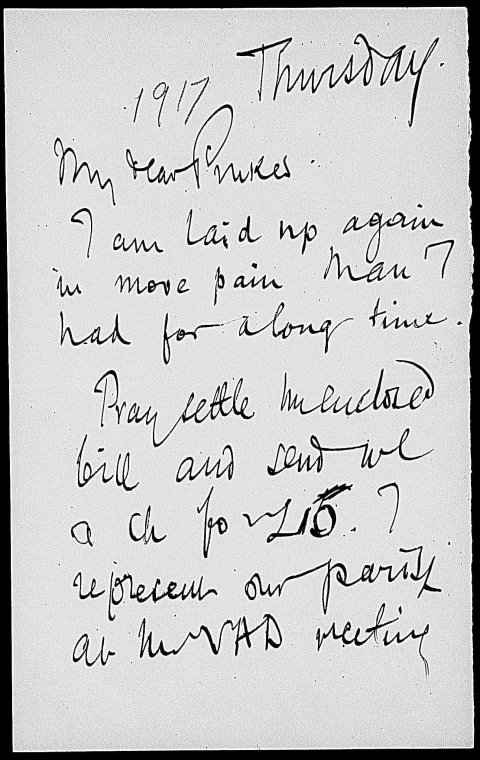 Thursday.
1917
My dear Pinkes.
I am laid up again
in more pain than I
had for a long time.
Pray settle the enclosed
bill and send me
a ch for £15. I
represent our parish
at the VAD meeting